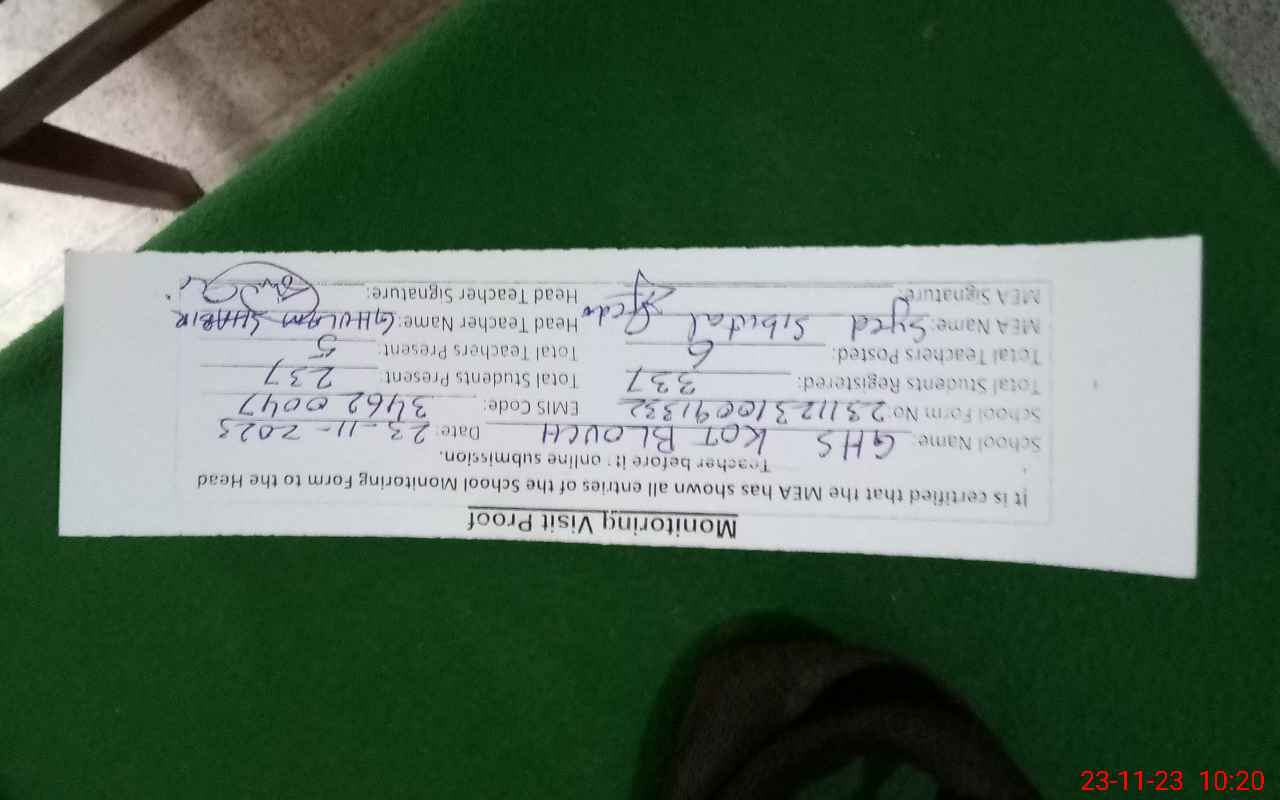 Monitoring Visit Proof
It is certified that the MEA has shown all entries of the School Monitoring Form to the Head
Teacher before it: online submission.
School Name: GHS KOT BLOUCH Date: 23-11-2023
School Form No: 23112310091332 EMIS Code: 34620047
Total Students Registered: 337 Total Students Present: 237
Total Teachers Posted: 6 Total Teachers Present: 5
MEA Name: Syed Head Teacher Name: GHULAM SHABIR
MEA Signature: Head Teacher Signature:
23-11-23 10:20